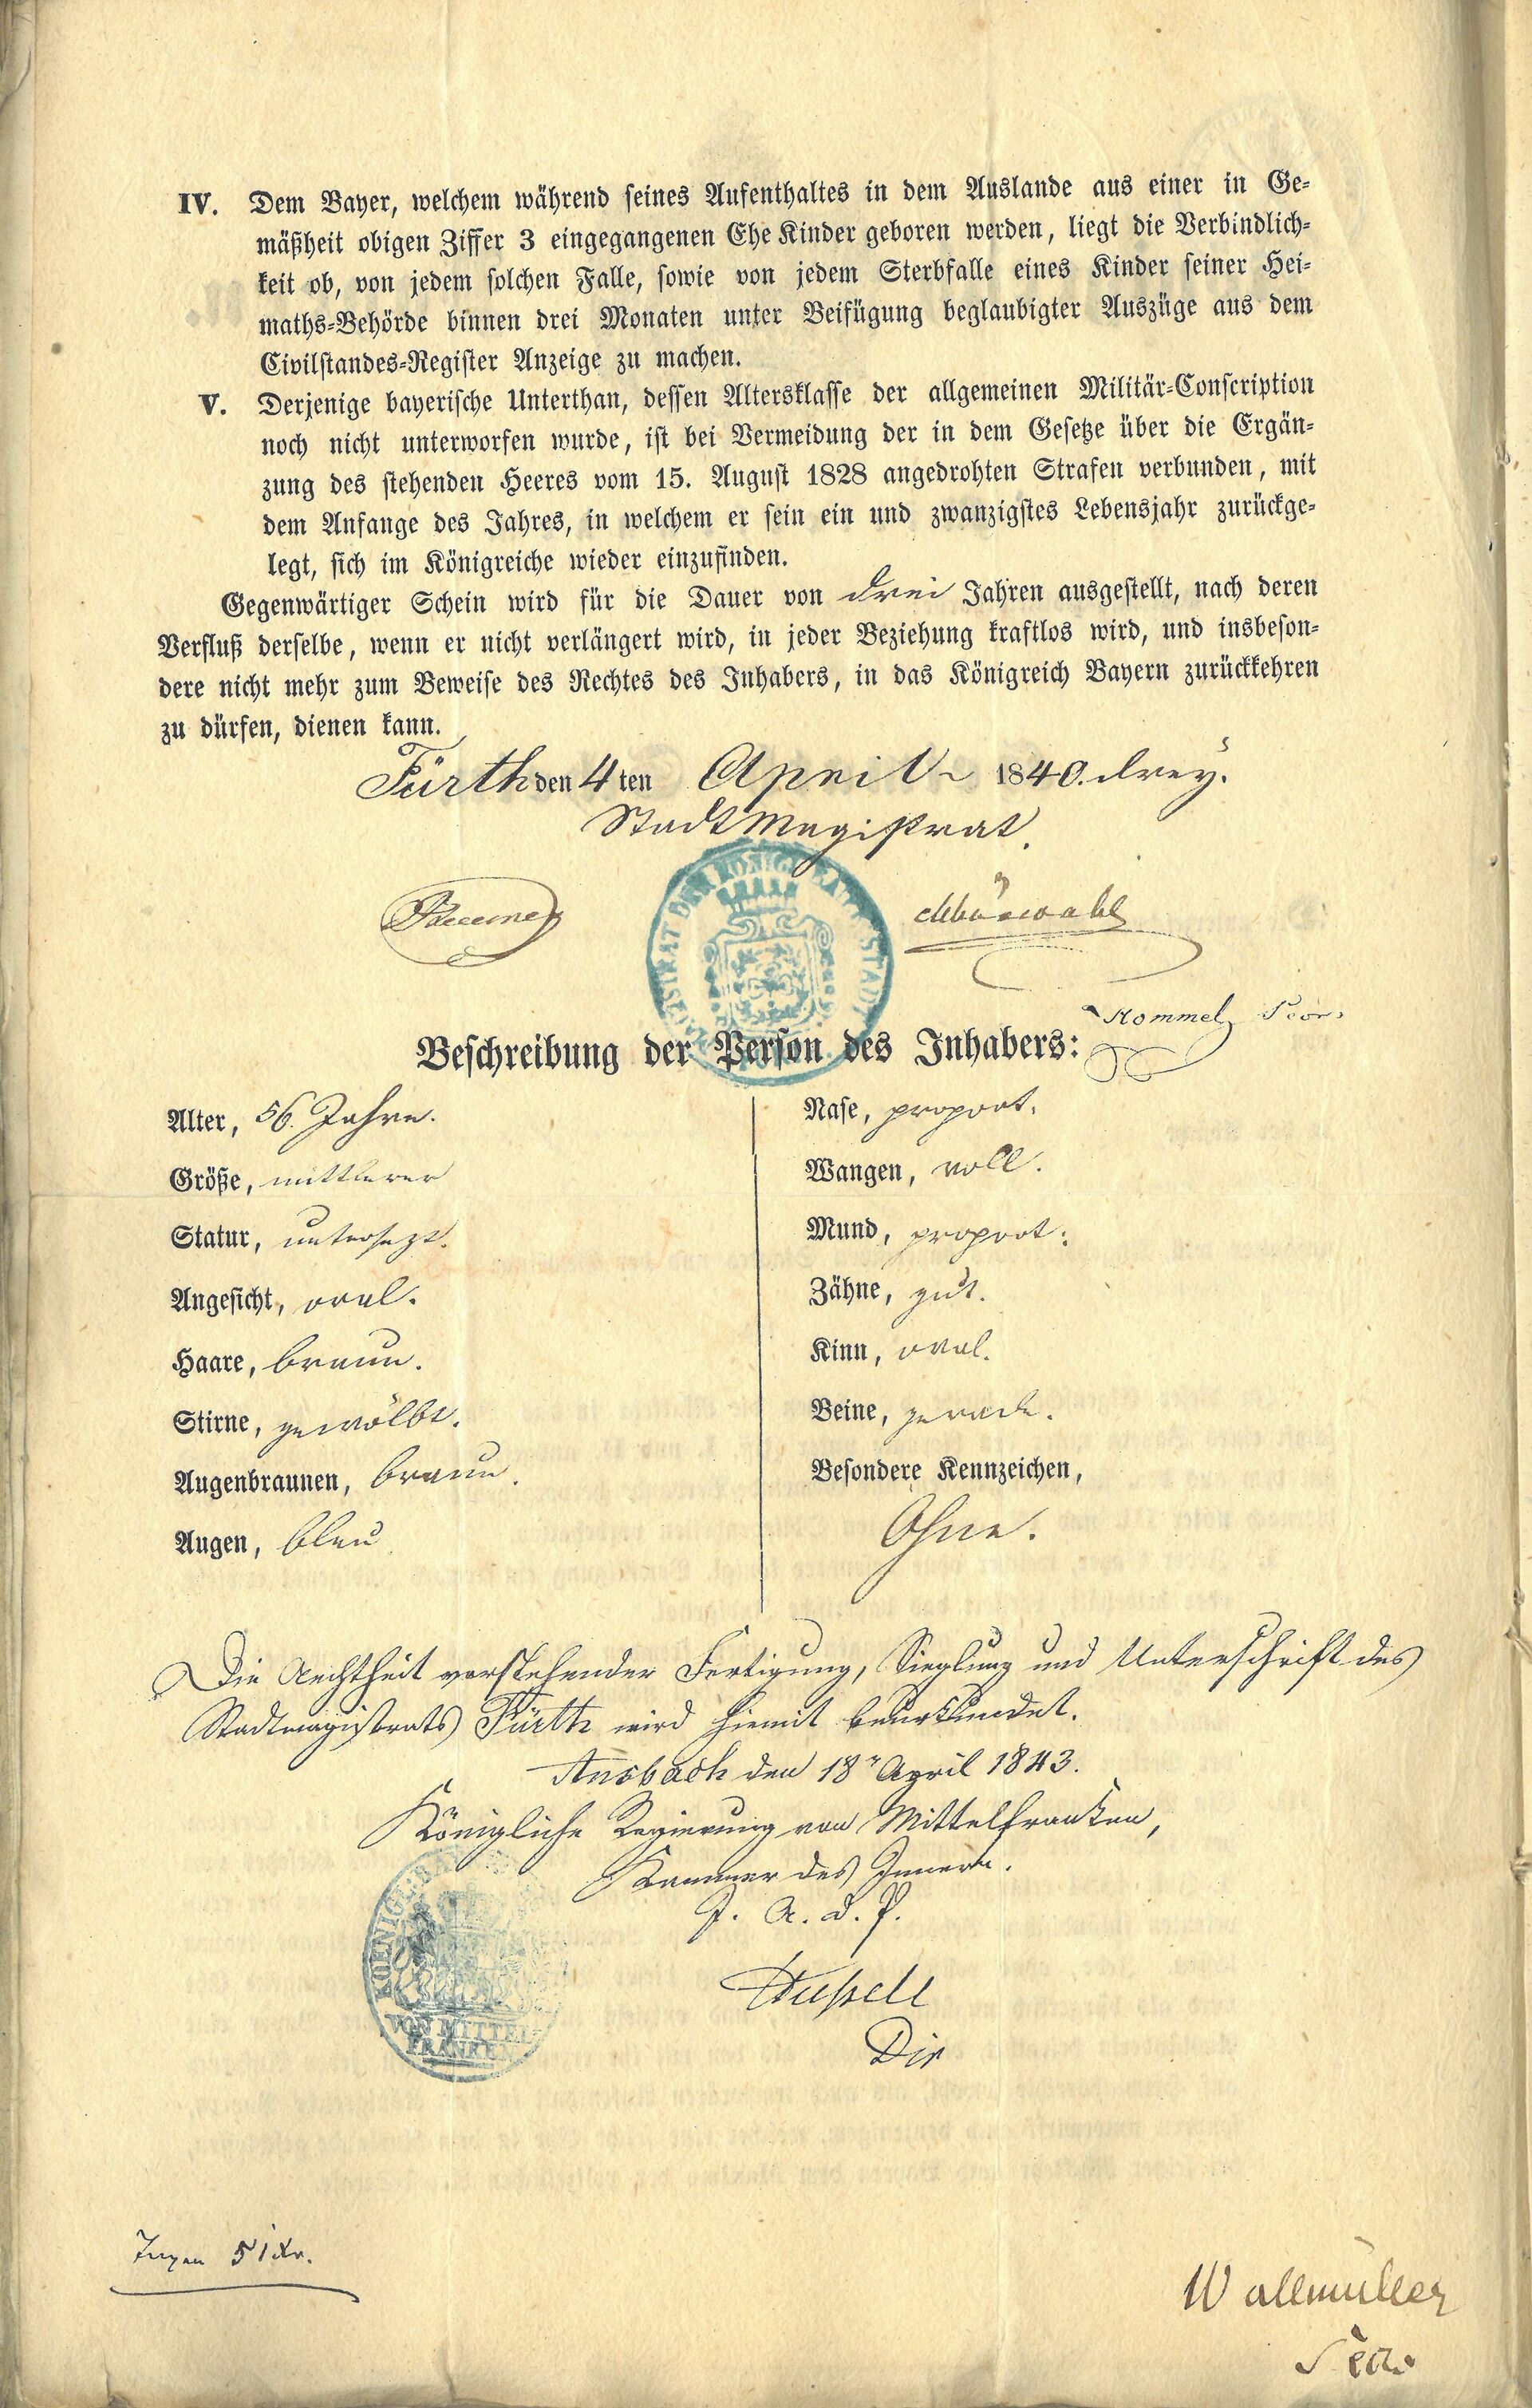 IV. Dem Bayer, welchem während seines Aufenthaltes in dem Auslande aus einer in Ge-
mäßheit obigen Ziffer 3 eingegangenen Ehe Kinder geboren werden, liegt die Verbindlich-
keit ob, von jedem solchen Falle, sowie von jedem Sterbfalle eines Kinder seiner Hei-
maths-Behörde binnen drei Monaten unter Beifügung beglaubigter Auszüge aus dem
Civilstandes-Register Anzeige zu machen.
V. Derjenige bayerische Unterthan, dessen Altersklasse der allgemeinen Militär-Conscription
noch nicht unterworfen wurde, ist bei Vermeidung der in dem Gesetze über die Ergän-
zung des stehenden Heeres vom 15. August 1828 angedrohten Strafen verbunden, mit
dem Anfange des Jahres, in welchem er sein ein und zwanzigstes Lebensjahr zurückge-
legt, sich im Königreiche wieder einzufinden.
Gegenwärtiger Schein wird für die Dauer von drei Jahren ausgestellt, nach deren
Verfluß derselbe, wenn er nicht verlängert wird, in jeder Beziehung kraftlos wird, und insbeson-
dere nicht mehr zum Beweise des Rechtes des Inhabers, in das Königreich Bayern zurückkehren
zu dürfen, dienen kann.
Fürth den 4ten April 1840. drey.
Stadt Magistrat.
Hommel Secr.
Beschreibung der Person des Inhabers:
Alter, 56. Jahre.
Größe, mittlerer
Statur, untersezt.
Angesicht, oval.
Haare, braun.
Stirne, gewölbt.
Augenbraunen, braun.
Augen, blau
Nase, proport.
Wangen, voll.
Mund, proport.
Zähne, gut.
Kinn, oval.
Beine, gerade.
Besondere Kennzeichen,
Ohne.
Die Aechtheit vorstehender Fertigung, Sieglung und Unterschrift des
Stadtmagistrats Fürth wird hiemit beurkundet.
Ansbach den 18n April 1843.
Königliche Regierung von Mittelfranken,
Kammer des Innern.
KOENIGL. BA
VON MITTEL-
FRANKEN
Dir
Taxen 51 Xr.
Wallmüller
Secr.